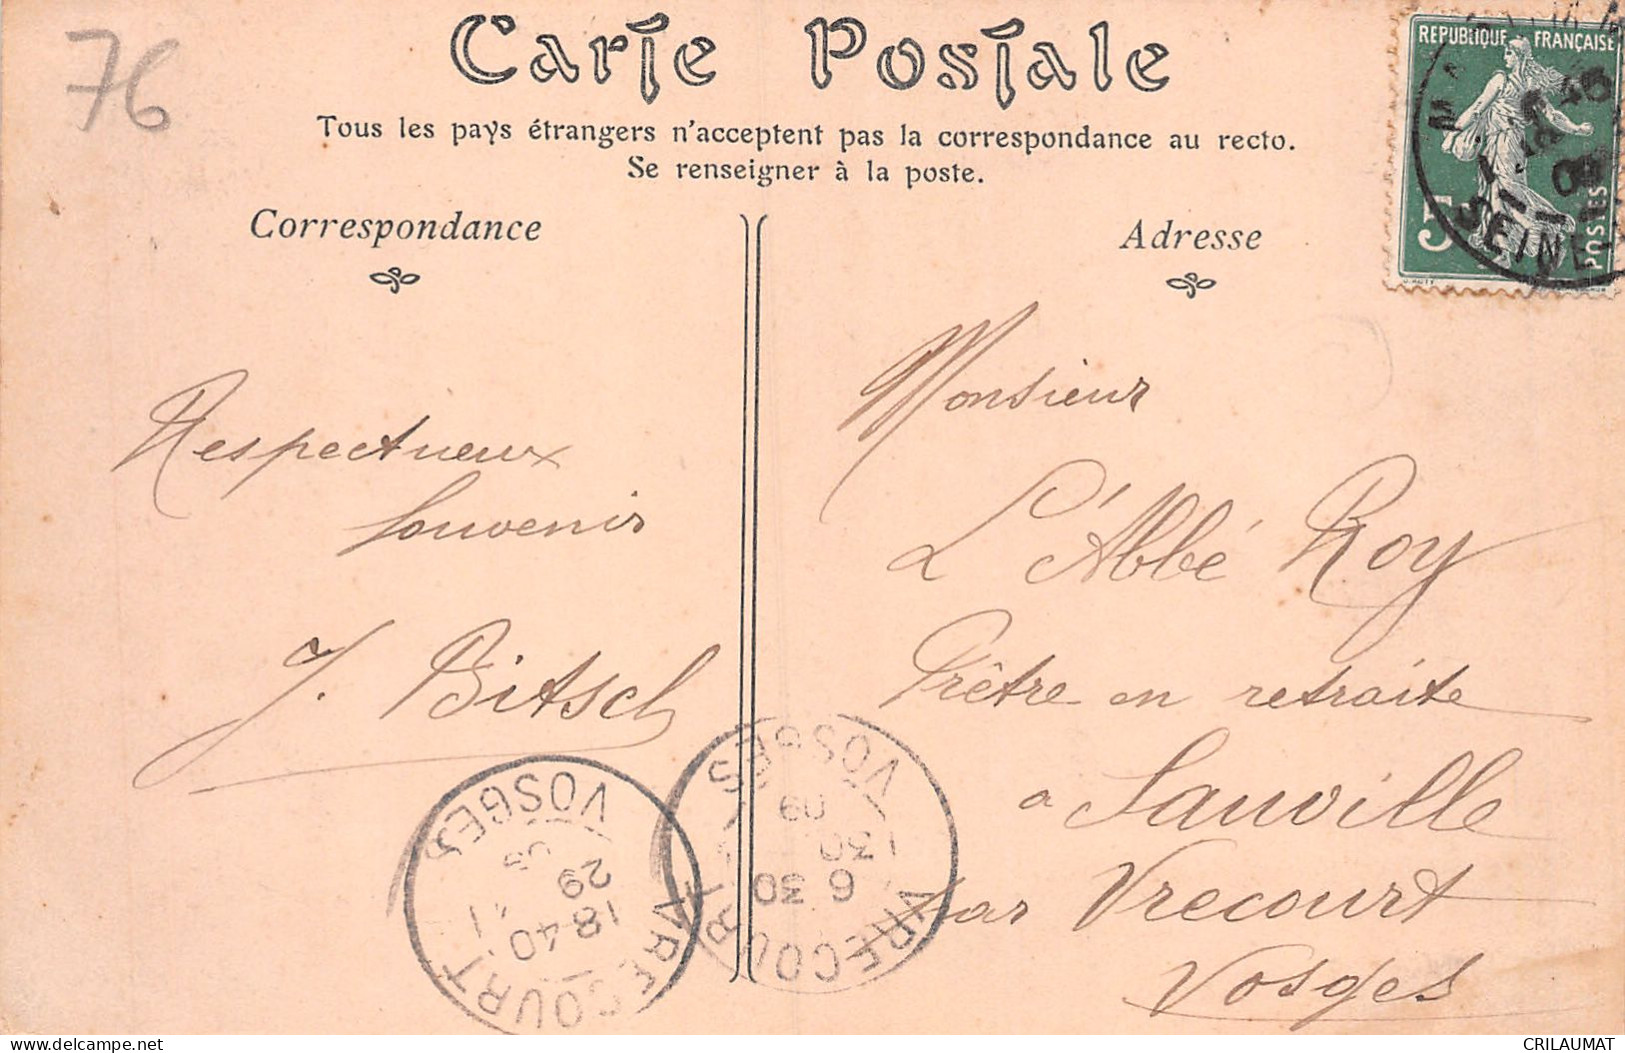 76
Carte Postale
Tous les pays étrangers n'acceptent pas la correspondance au recto.
Se renseigner à la poste.
REPUBLIQUE FRANÇAISE
5
POSTES
SEINE
Correspondance
Adresse
Respectueux
souvenir
J. Bitsch
Monsieur
L'Abbé Roy
Prêtre en retraite
a Sauville
par Vrecourt
Vosges
VRECOURT
18-40
29
VOSGES
VRECOURT
6 30
30
09
VOSGES
CRILAUMAT